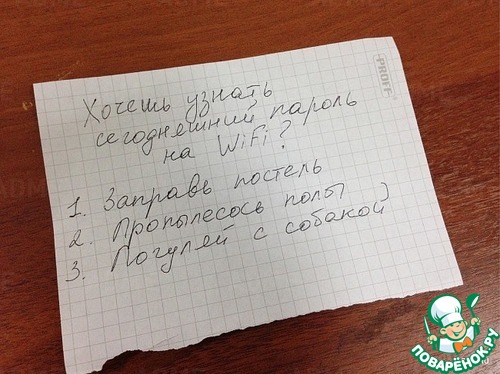 PROFF
Хочешь узнать
сегодняшний пароль
на WiFi?
1. Заправь постель
2. Пропылесось полы
3. Погуляй с собакой)
ПОВАРЁНОК.РУ